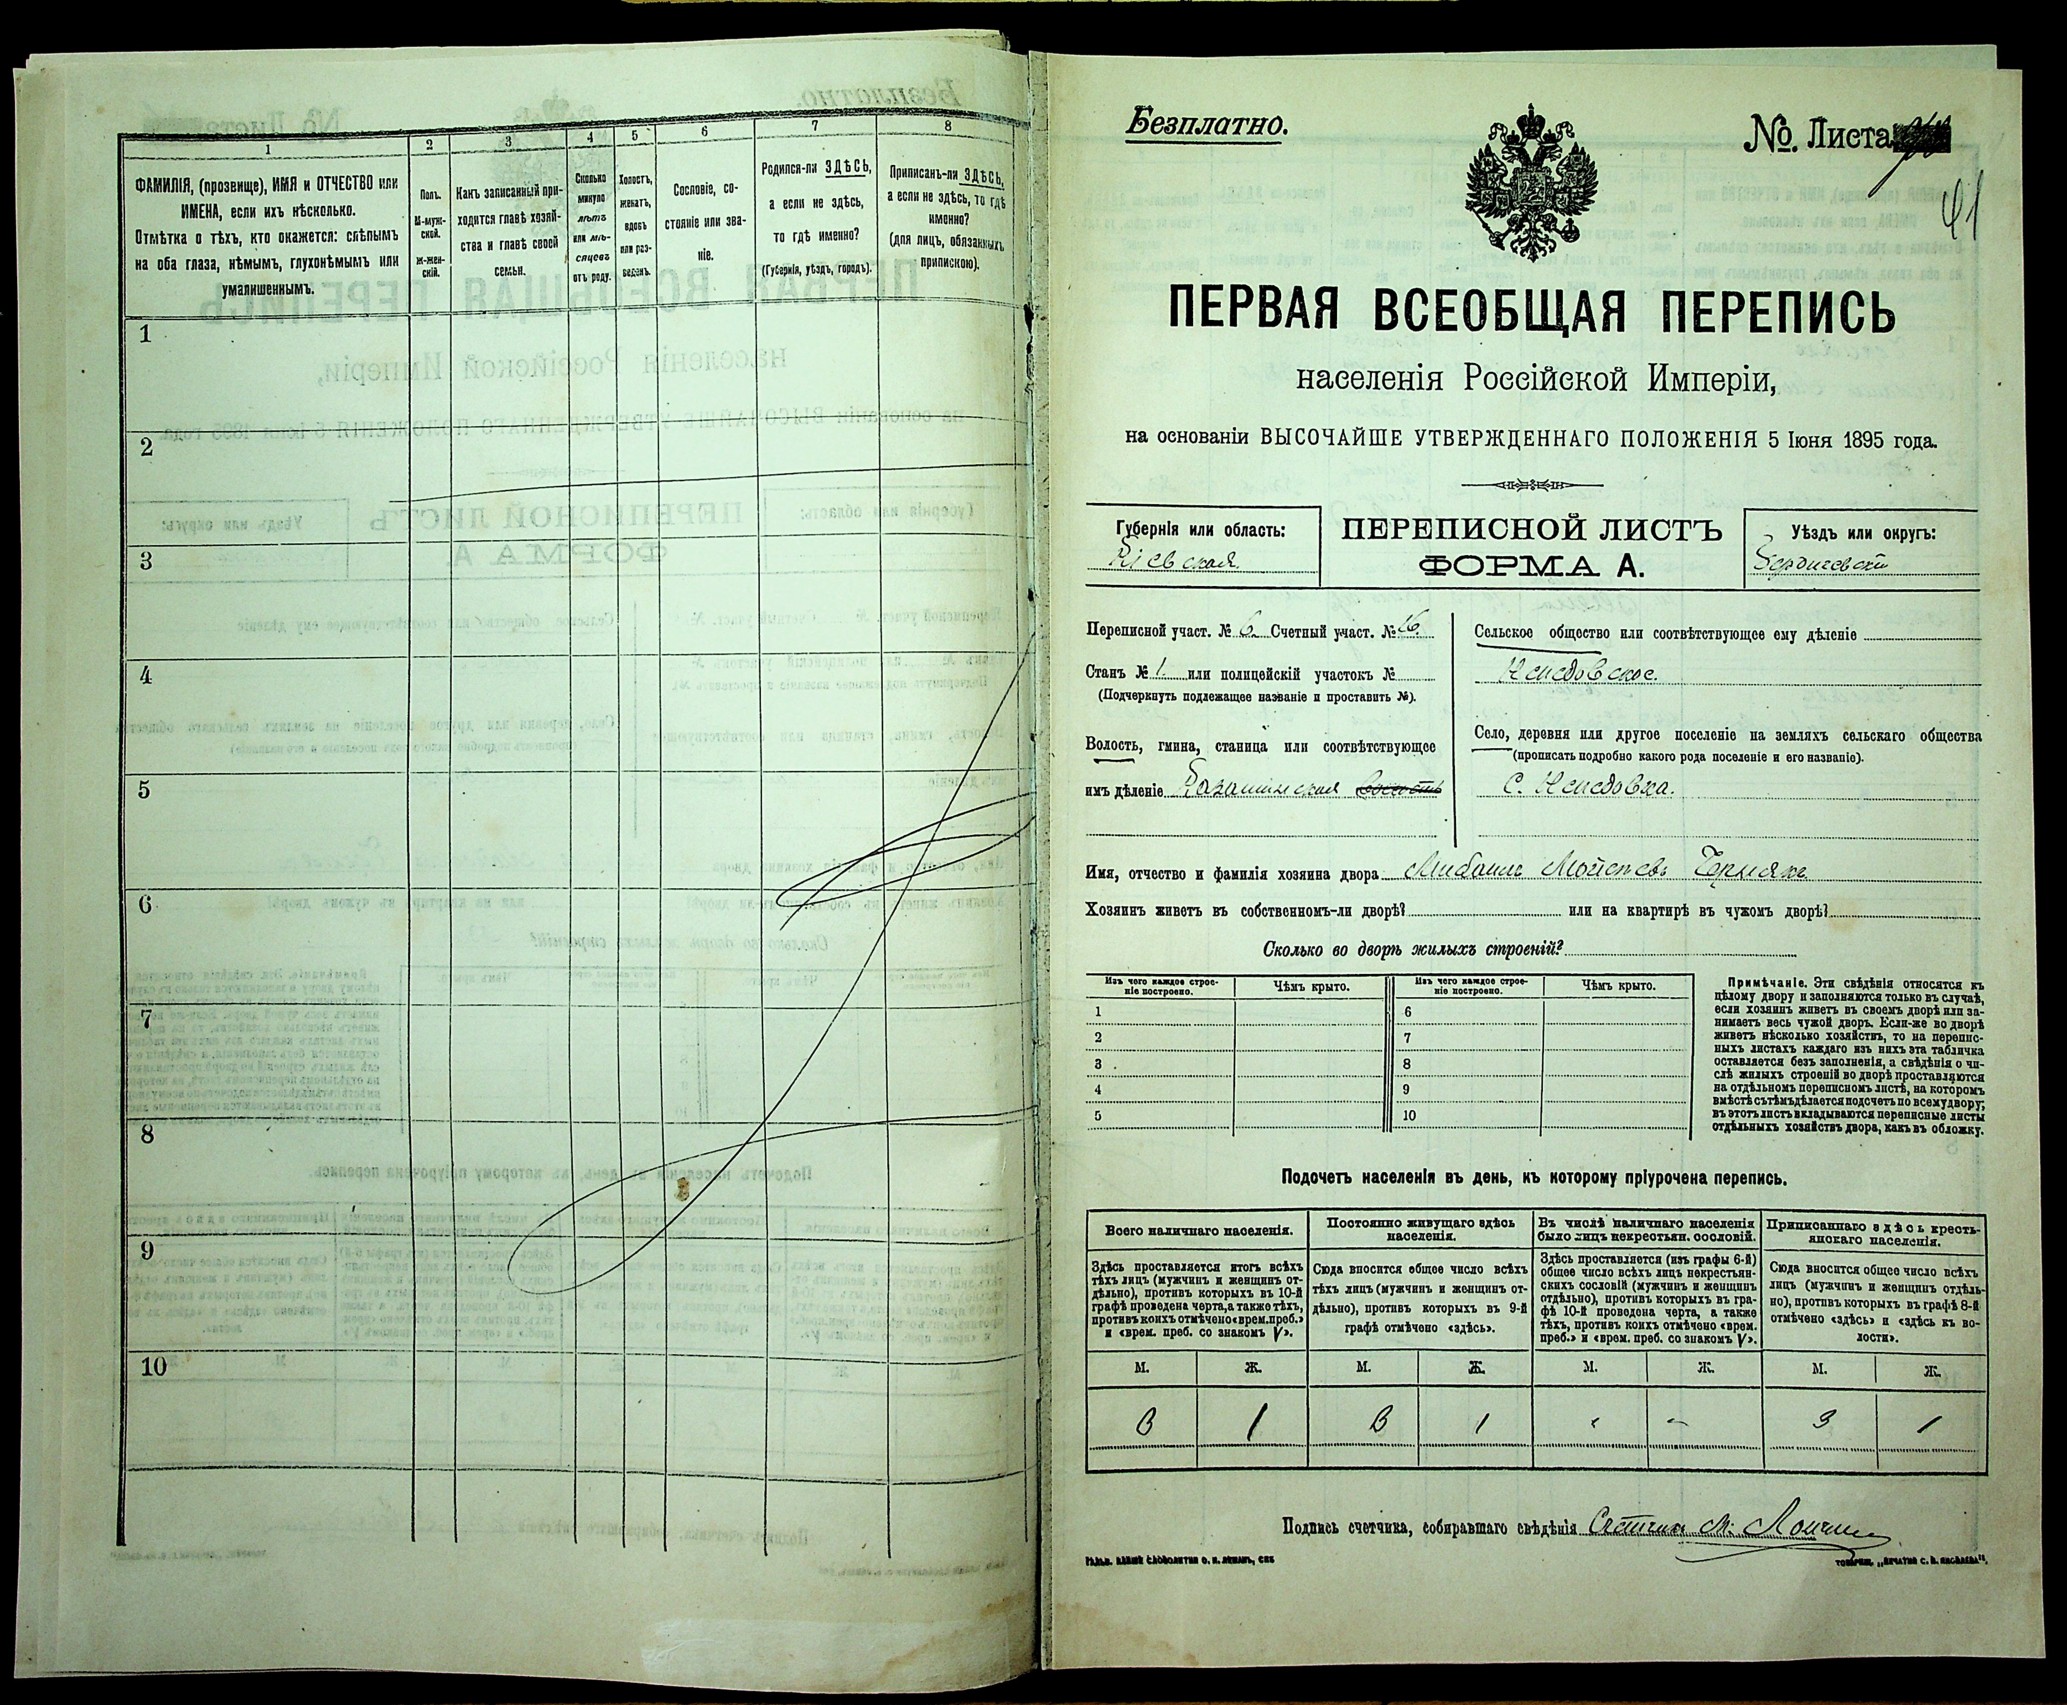 1
2
3
4
5
6
7
8
ФАМИЛІЯ, (прозвище), ИМЯ и ОТЧЕСТВО или
ИМЕНА, если ихъ нѣсколько.
Отмѣтка о тѣхъ, кто окажется: слѣпымъ
на оба глаза, нѣмымъ, глухонѣмымъ или
умалишеннымъ.
Полъ.
М-муж-
ской.
Ж-жен-
скій.
Какъ записанный при-
ходится главѣ хозяй-
ства и главѣ своей
семьи.
Сколько
минуло
лѣтъ
или мѣ-
сяцевъ
отъ роду.
Холостъ,
женатъ,
вдовъ
или раз-
веденъ.
Сословіе, со-
стояніе или зва-
ніе.
Родился-ли ЗДѢСЬ,
а если не здѣсь,
то гдѣ именно?
(Губернія, уѣздъ, городъ).
Приписанъ-ли ЗДѢСЬ,
а если не здѣсь, то гдѣ
именно?
(для лицъ, обязанныхъ
припискою).
1
2
3
4
5
6
7
8
9
10
Безплатно.
№. Листа
91
ПЕРВАЯ ВСЕОБЩАЯ ПЕРЕПИСЬ
населенія Россійской Имперіи,
на основаніи ВЫСОЧАЙШЕ УТВЕРЖДЕННАГО ПОЛОЖЕНІЯ 5 Іюня 1895 года.
Губернія или область:
Кіевская.
ПЕРЕПИСНОЙ ЛИСТЪ
ФОРМА А.
Уѣздъ или округъ:
Бердичевскій
Переписной участ. № 6. Счетный участ. № 16.
Станъ № 1. или полицейскій участокъ №
(Подчеркнуть подлежащее названіе и проставить №).
Волость, гмина, станица или соотвѣтствующее
имъ дѣленіе волость
Сельское общество или соотвѣтствующее ему дѣленіе
Село, деревня или другое поселеніе на земляхъ сельскаго общества
(прописать подробно какого рода поселеніе и его названіе).
С.
Имя, отчество и фамилія хозяина двора Черняк
Хозяинъ живетъ въ собственномъ-ли дворѣ? или на квартирѣ въ чужомъ дворѣ?
Сколько во дворѣ жилыхъ строеній?
Изъ чего каждое строе-
ніе построено.
Чѣмъ крыто.
Изъ чего каждое строе-
ніе построено.
Чѣмъ крыто.
1
6
2
7
3
8
4
9
5
10
Примѣчаніе. Эти свѣдѣнія относятся къ
цѣлому двору и заполняются только въ случаѣ,
если хозяинъ живетъ въ своемъ дворѣ или за-
нимаетъ весь чужой дворъ. Если-же во дворѣ
живетъ нѣсколько хозяйствъ, то на перепис-
ныхъ листахъ каждаго изъ нихъ эта табличка
оставляется безъ заполненія, а свѣдѣнія о чи-
слѣ жилыхъ строеній во дворѣ проставляются
на отдѣльномъ переписномъ листѣ, на которомъ
вмѣстѣ съ тѣмъ дѣлается подсчетъ по всему двору;
въ этотъ листъ вкладываются переписные листы
отдѣльныхъ хозяйствъ двора, какъ въ обложку.
Подочетъ населенія въ день, къ которому пріурочена перепись.
Всего наличнаго населенія.
Постоянно живущаго здѣсь
населенія.
Въ числѣ наличнаго населенія
было лицъ некрестьян. сословій.
Приписаннаго здѣсь кресть-
янскаго населенія.
Здѣсь проставляется итогъ всѣхъ
тѣхъ лицъ (мужчинъ и женщинъ от-
дѣльно), противъ которыхъ въ 10-й
графѣ проведена черта, а также тѣхъ,
противъ коихъ отмѣчено «врем. преб.»
и «врем. преб. со знакомъ V».
Сюда вносится общее число всѣхъ
тѣхъ лицъ (мужчинъ и женщинъ от-
дѣльно), противъ которыхъ въ 9-й
графѣ отмѣчено «здѣсь».
Здѣсь проставляется (изъ графы 6-й)
общее число всѣхъ лицъ некрестьян-
скихъ сословій (мужчинъ и женщинъ
отдѣльно), противъ которыхъ въ гра-
фѣ 10-й проведена черта, а также
тѣхъ, противъ коихъ отмѣчено «врем.
преб.» и «врем. преб. со знакомъ V».
Сюда вносится общее число всѣхъ
лицъ (мужчинъ и женщинъ отдѣль-
но), противъ которыхъ въ графѣ 8-й
отмѣчено «здѣсь» и «здѣсь къ во-
лости».
М.
Ж.
М.
Ж.
М.
Ж.
М.
Ж.
3
1
3
1
-
-
3
1
Подпись счетчика, собиравшаго свѣдѣнія